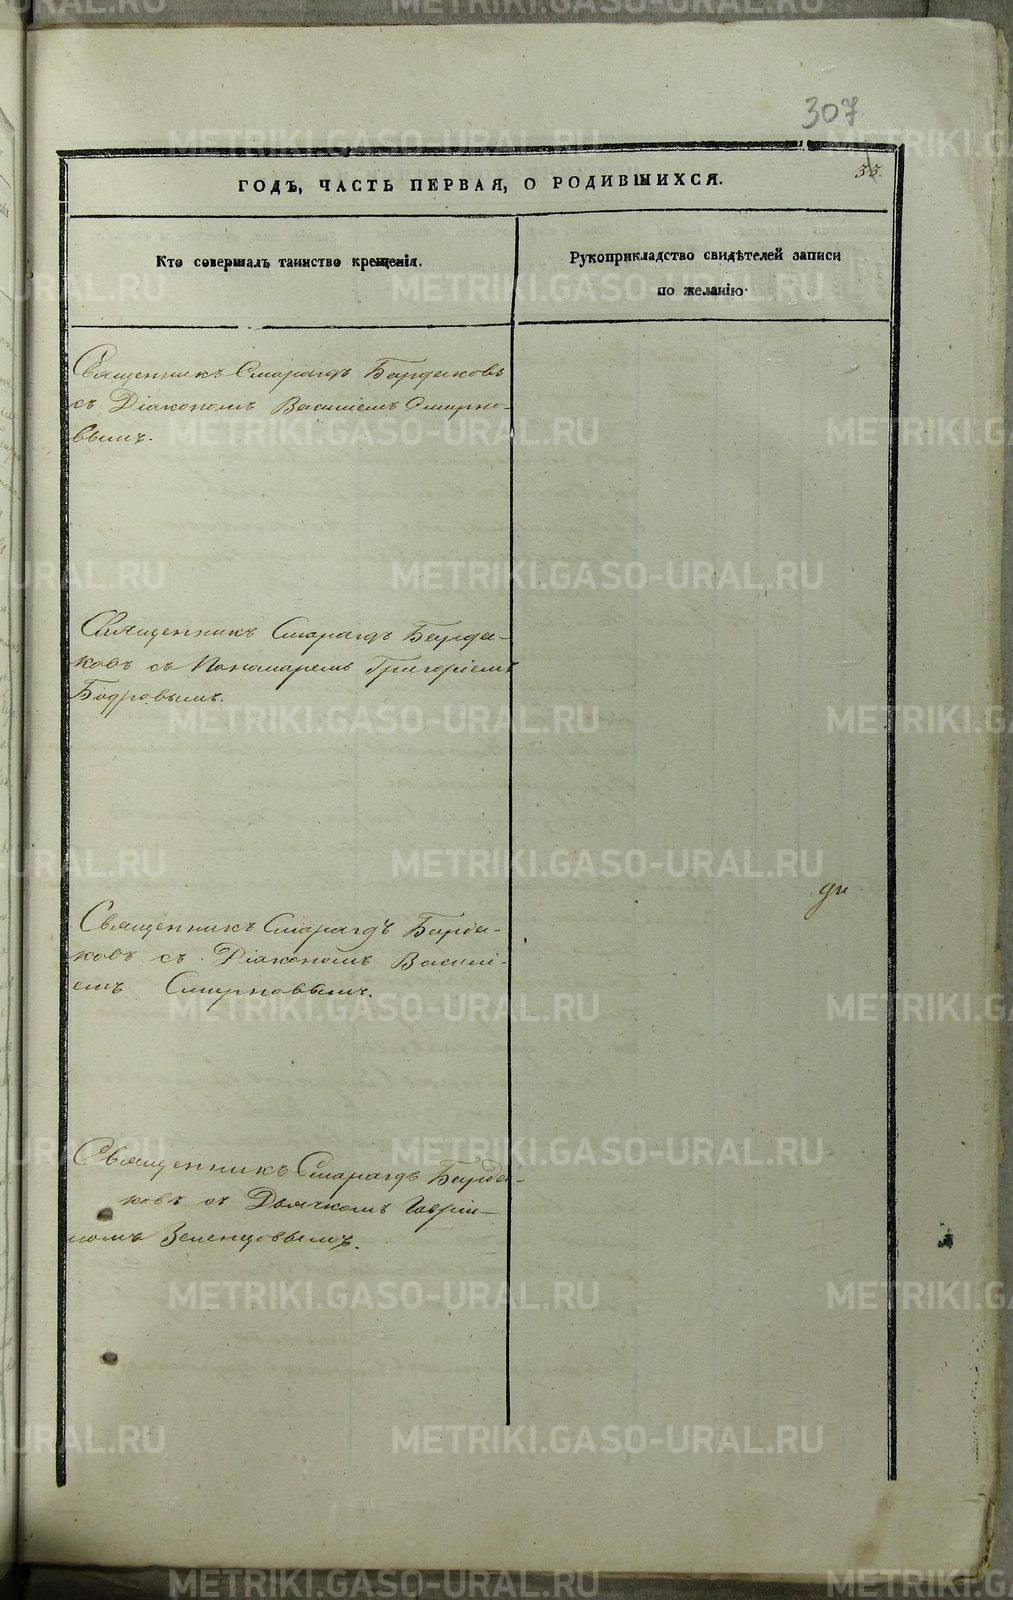 307
33.
ГОДЪ, ЧАСТЬ ПЕРВАЯ, О РОДИВШИХСЯ.
Кто совершалъ таинство крещенія.
Рукоприкладство свидѣтелей записи
по желанію
Священникъ Смарагдъ Бардаковъ
съ Діакономъ Василіемъ Смирно-
вымъ.
Священникъ Смарагдъ Барда-
ковъ съ Пономаремъ Григоріемъ
Бодровымъ.
Священникъ Смарагдъ Барда-
ковъ съ Діакономъ Василі-
емъ Смирновымъ.
Священникъ Смарагдъ Барда-
ковъ съ Дьячкомъ Гаврии-
ломъ Зеленцовымъ.
METRIKI.GASO-URAL.RU